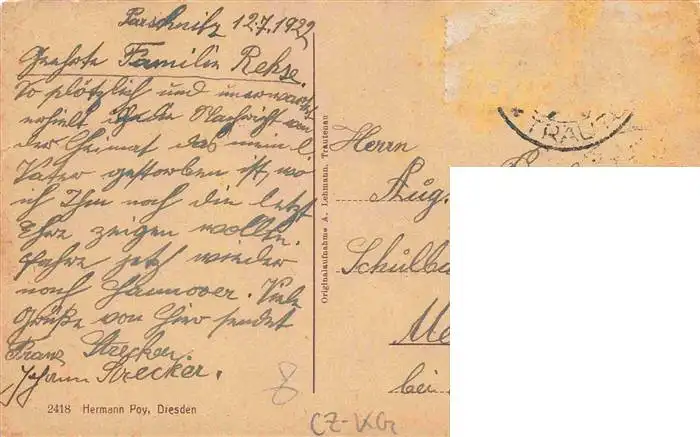 Parschnitz 12.7.1929
Geehrte Familie Rehse.
So plötzlich und unerwartet
erhielt ich die Nachricht von
der Heimat das mein l.
Vater gestorben ist, wo
ich Ihm noch die letzt
Ehre zeigen wollte.
fahre jetzt wieder
nach Hannover. Viele
Grüße von hier sendet
Franz Strecker.
Johann Strecker.
2418 Hermann Poy, Dresden
Originalaufnahme A. Lehmann, Trautenau
TRAUT
Herrn
Aug.
Schulba
Me
bei
8
CZ-KGr